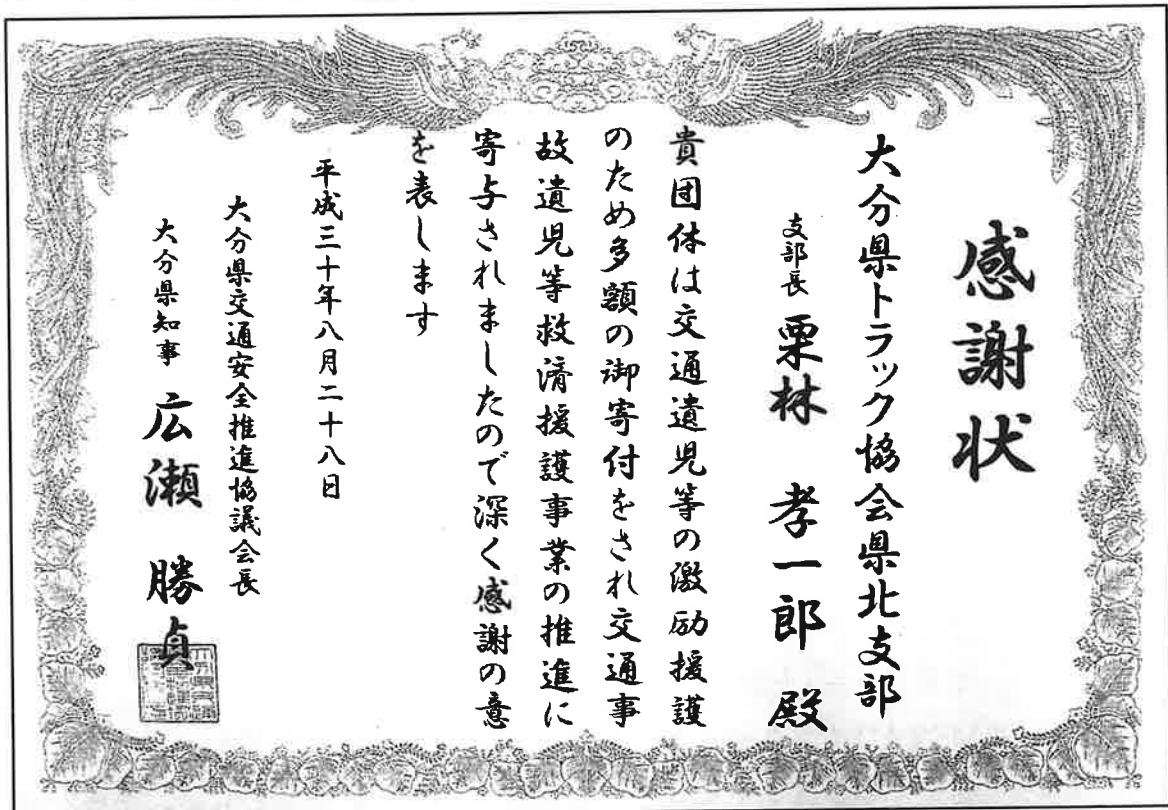 感謝状
大分県トラック協会県北支部
支部長 栗林 孝一郎 殿
貴団体は交通遺児等の激励援護
のため多額の御寄付をされ交通事
故遺児等救済援護事業の推進に
寄与されましたので深く感謝の意
を表します
平成三十年八月二十八日
大分県交通安全推進協議会長
大分県知事 広瀬 勝貞